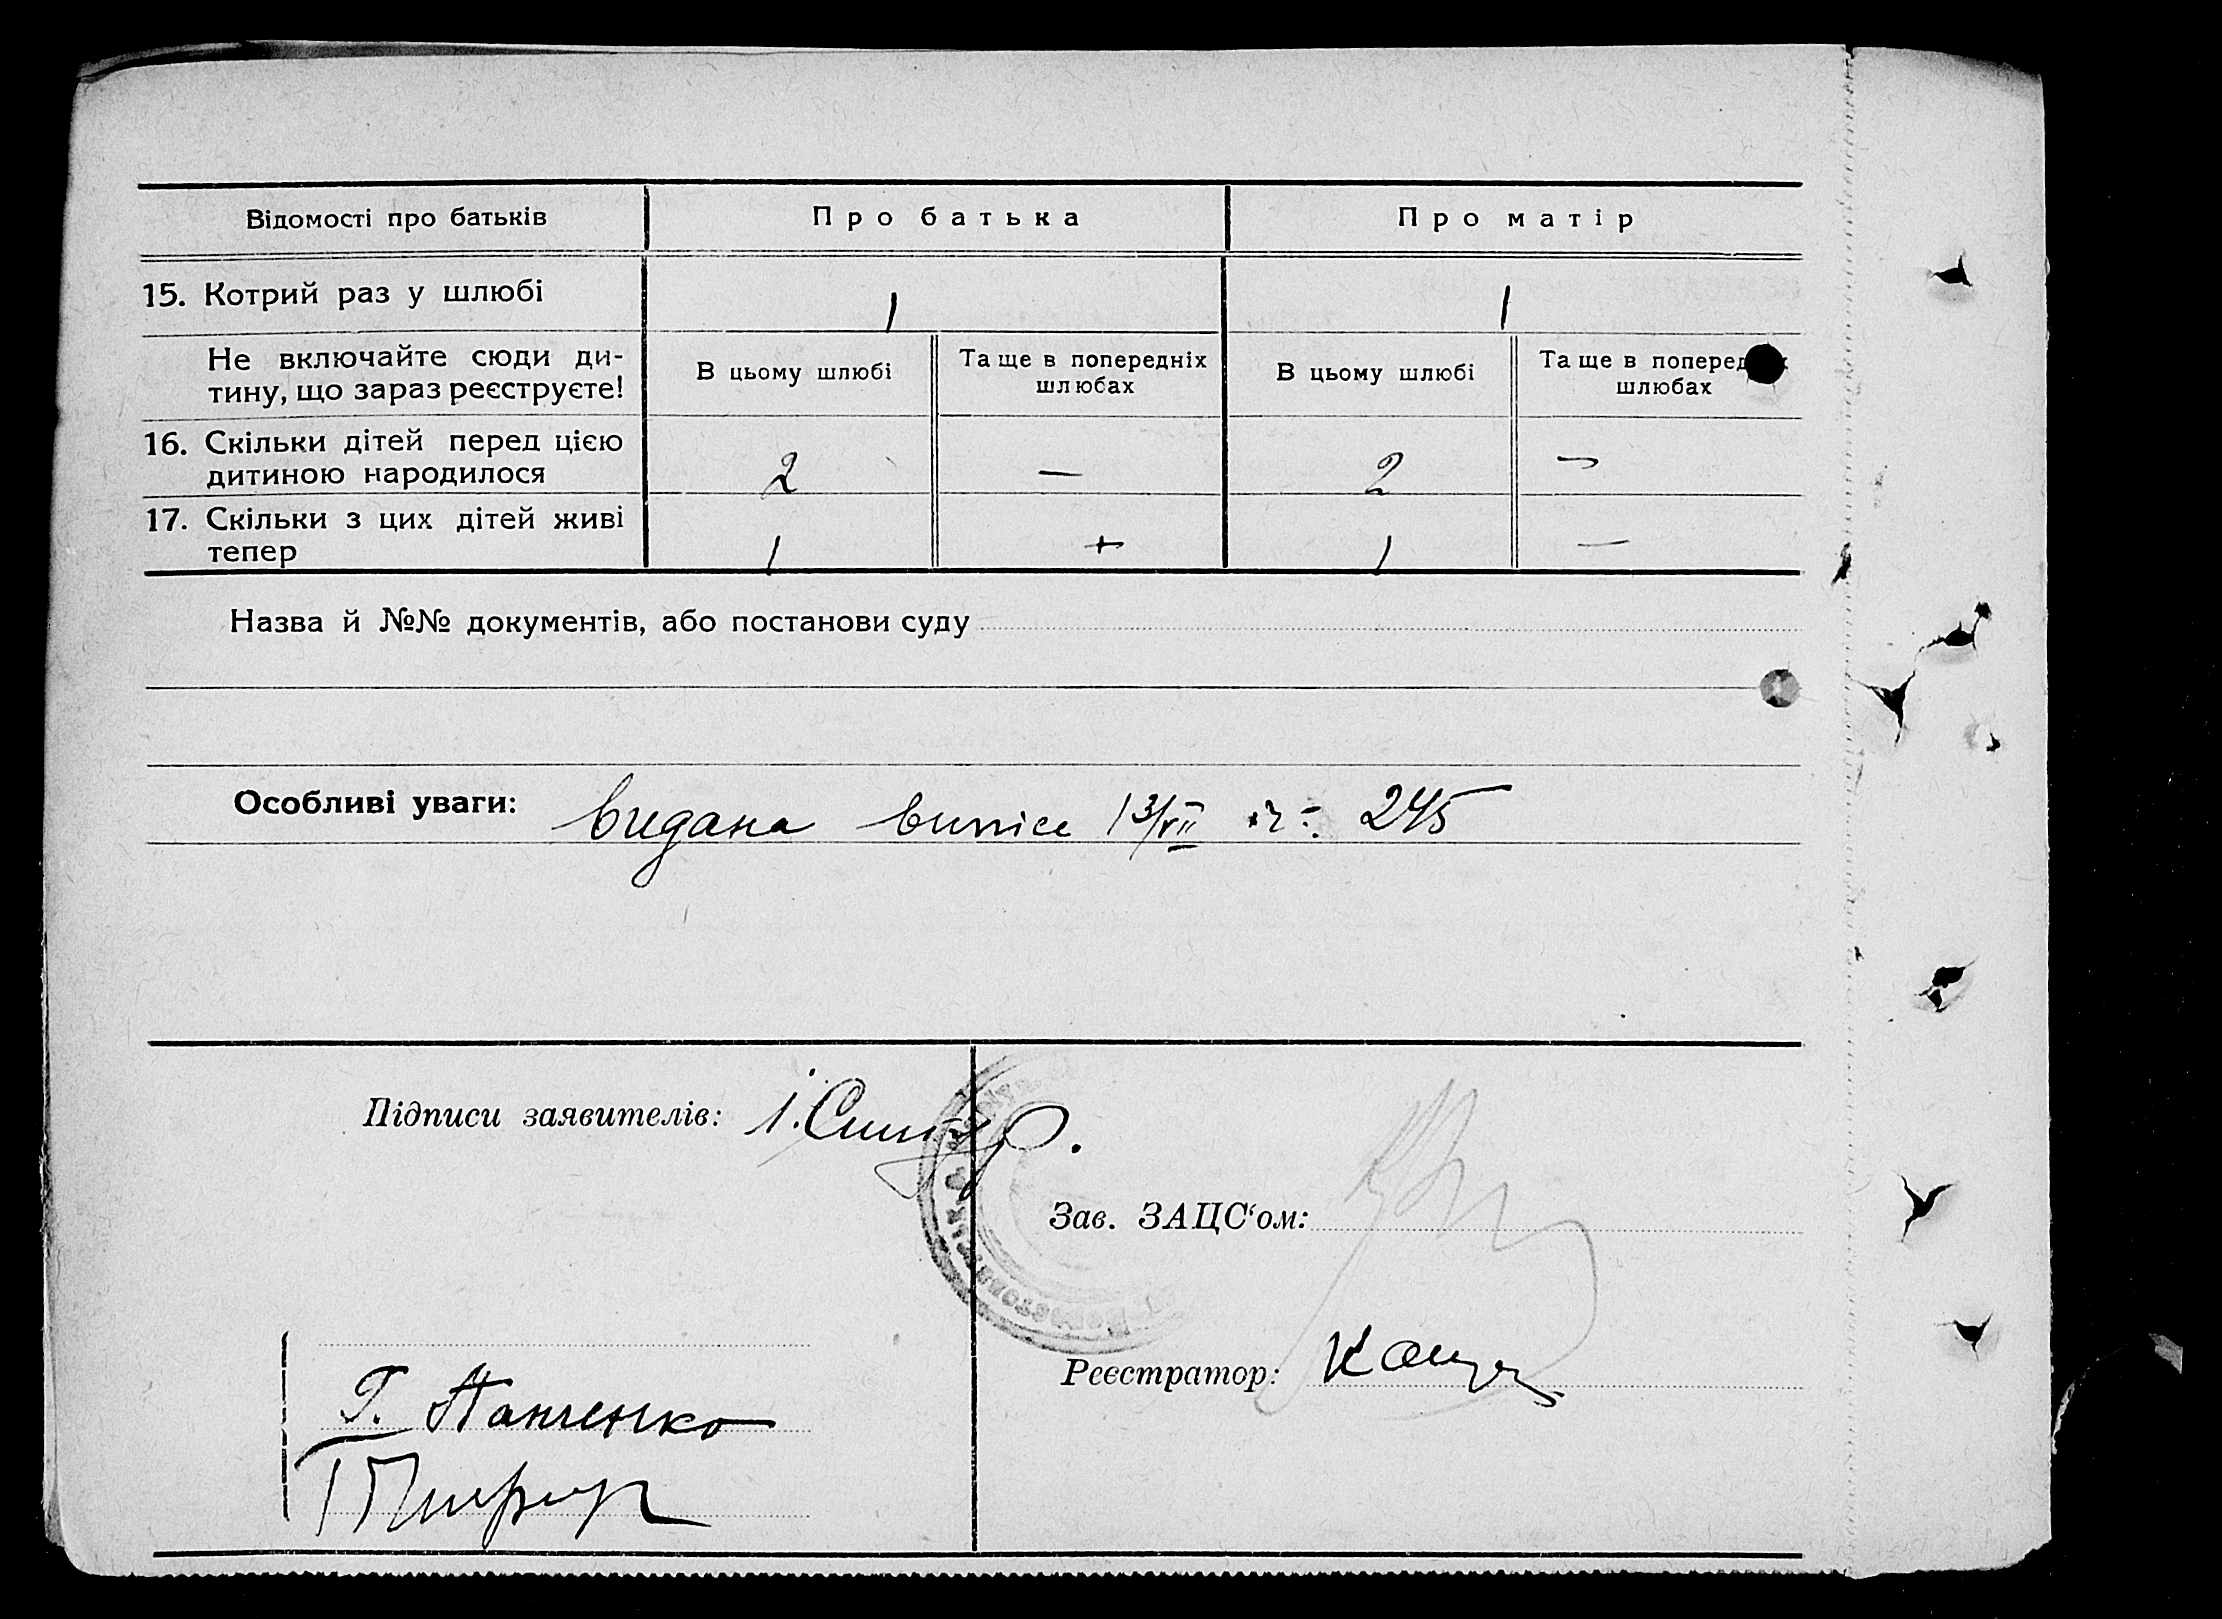 Відомості про батьків Про батька Про матір
15. Котрий раз у шлюбі 1 1
Не включайте сюди ди-
тину, що зараз реєструєте!
В цьому шлюбі Та ще в попередніх
шлюбах
В цьому шлюбі Та ще в
шлюбах
16. Скільки дітей перед цією
дитиною народилося 2 — 2 —
17. Скільки з цих дітей живі
тепер 1 + 1 —
Назва й №№ документів, або постанови суду
Особливі уваги: видана виписє 13/VII 245
Підписи заявителів: І.
Зав. ЗАЦС‘ом:
Реєстратор:
Г. Панченко